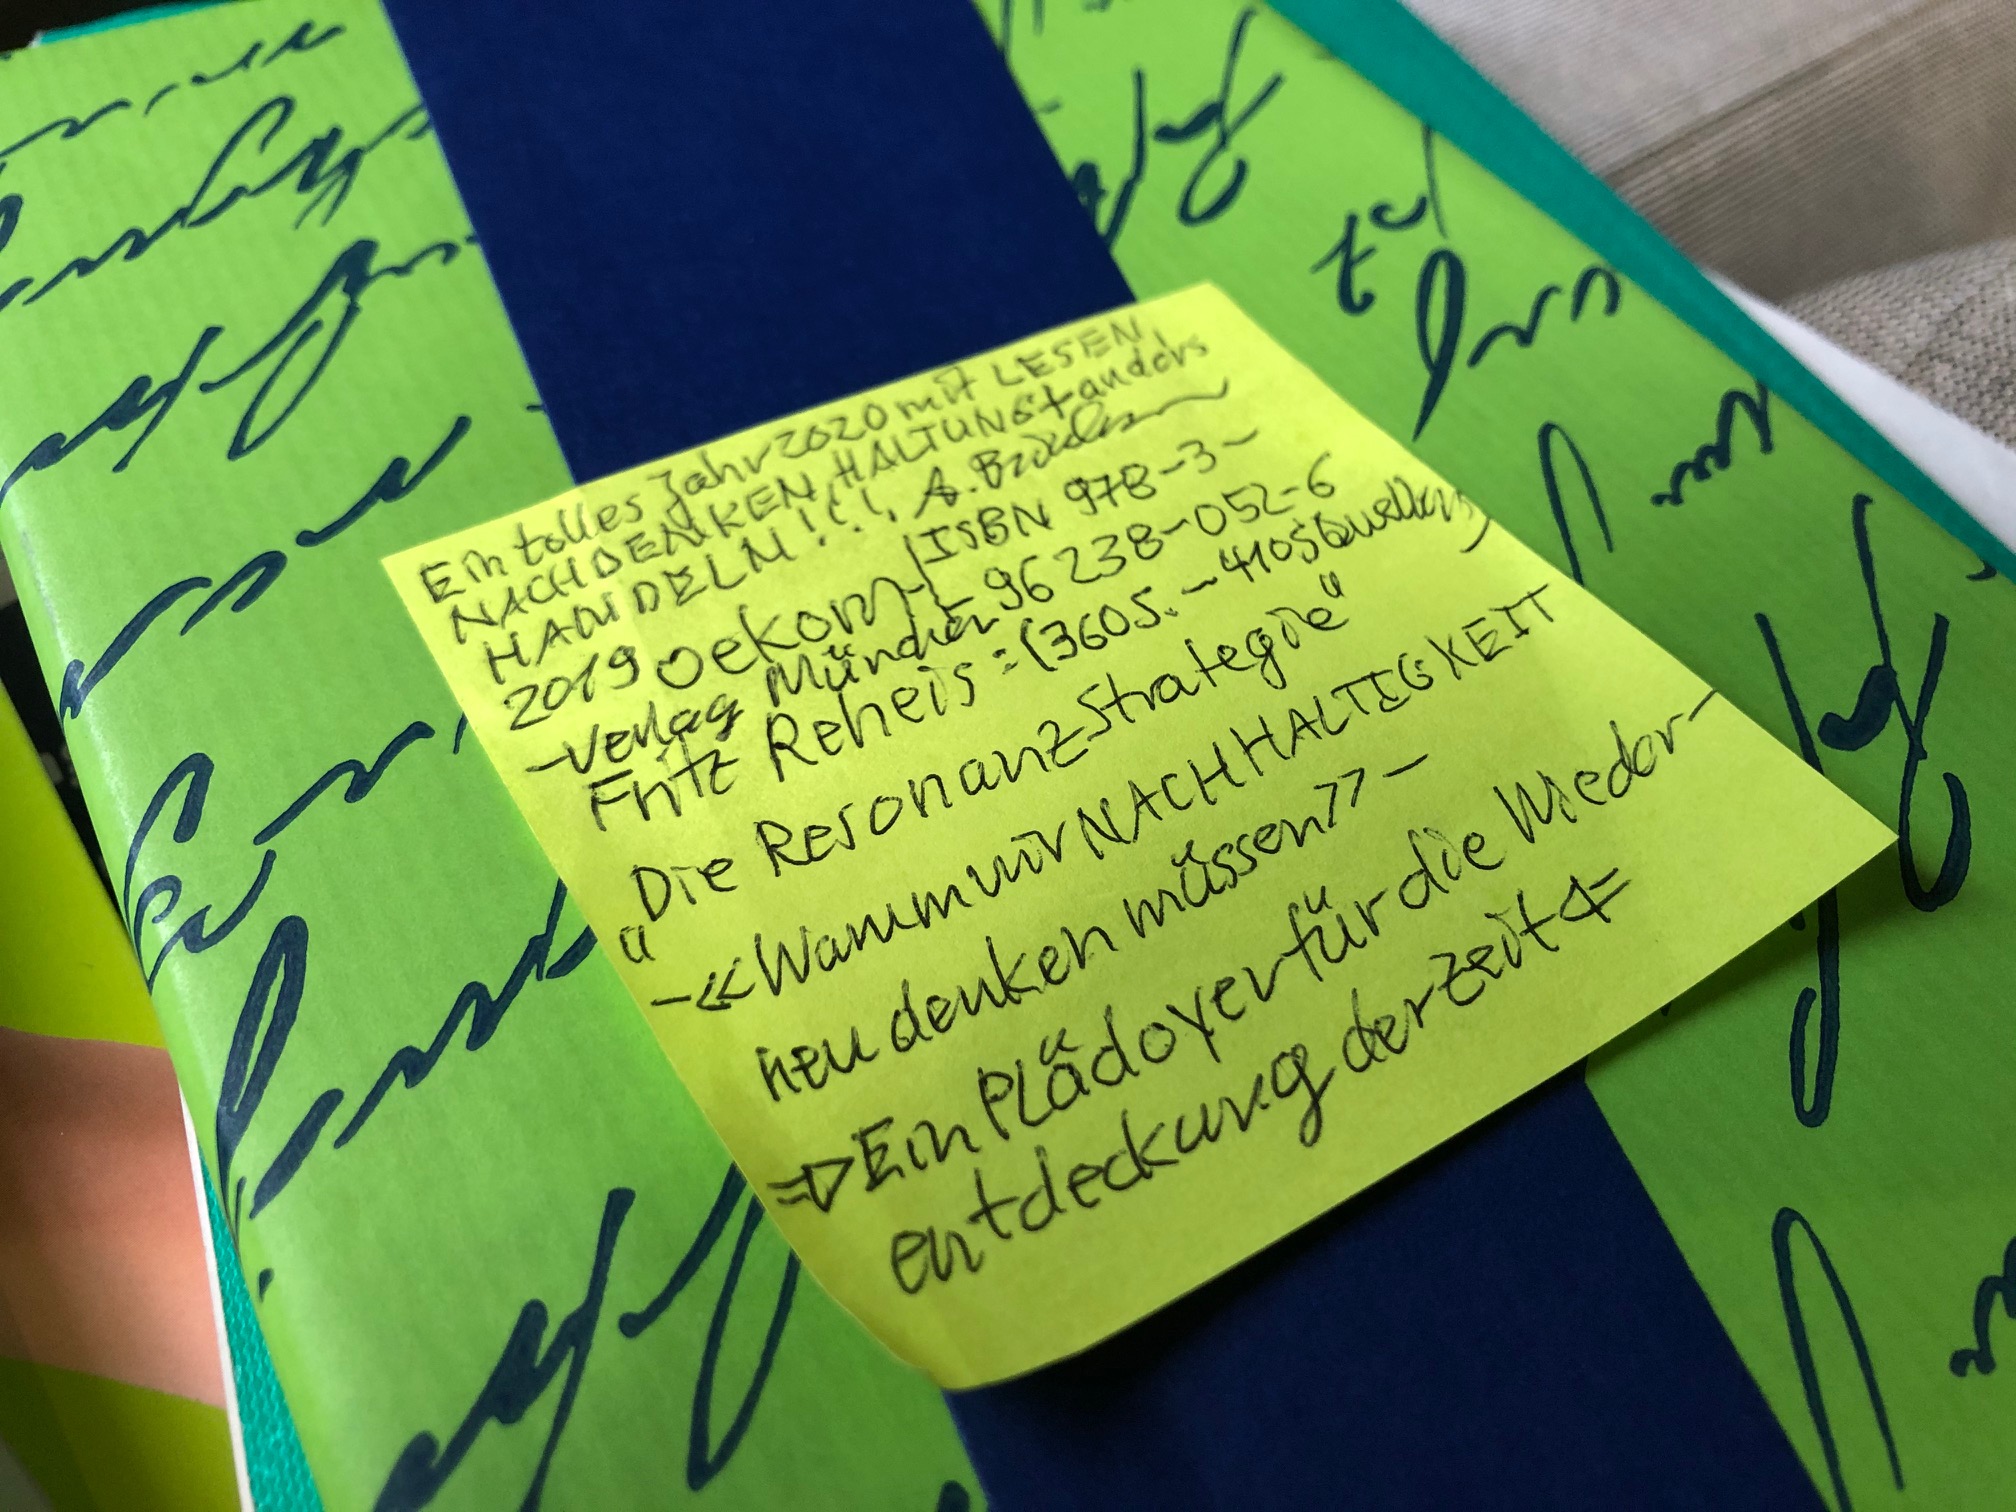 Ein tolles Jahr 2020 mit LESEN,
NACHDENKEN, HALTUNG + anders
HANDELN!!! A.
2019 oekom- ISBN 978-3-
-verlag München 96238-052-6
Fritz Reheis: (360S. - 410
"Die Resonanzstrategie"
-<<Warum wir NACHHALTIGKEIT
neu denken müssen>>-
⇒Ein Plädoyer für die Wieder-
entdeckung der Zeit⇐